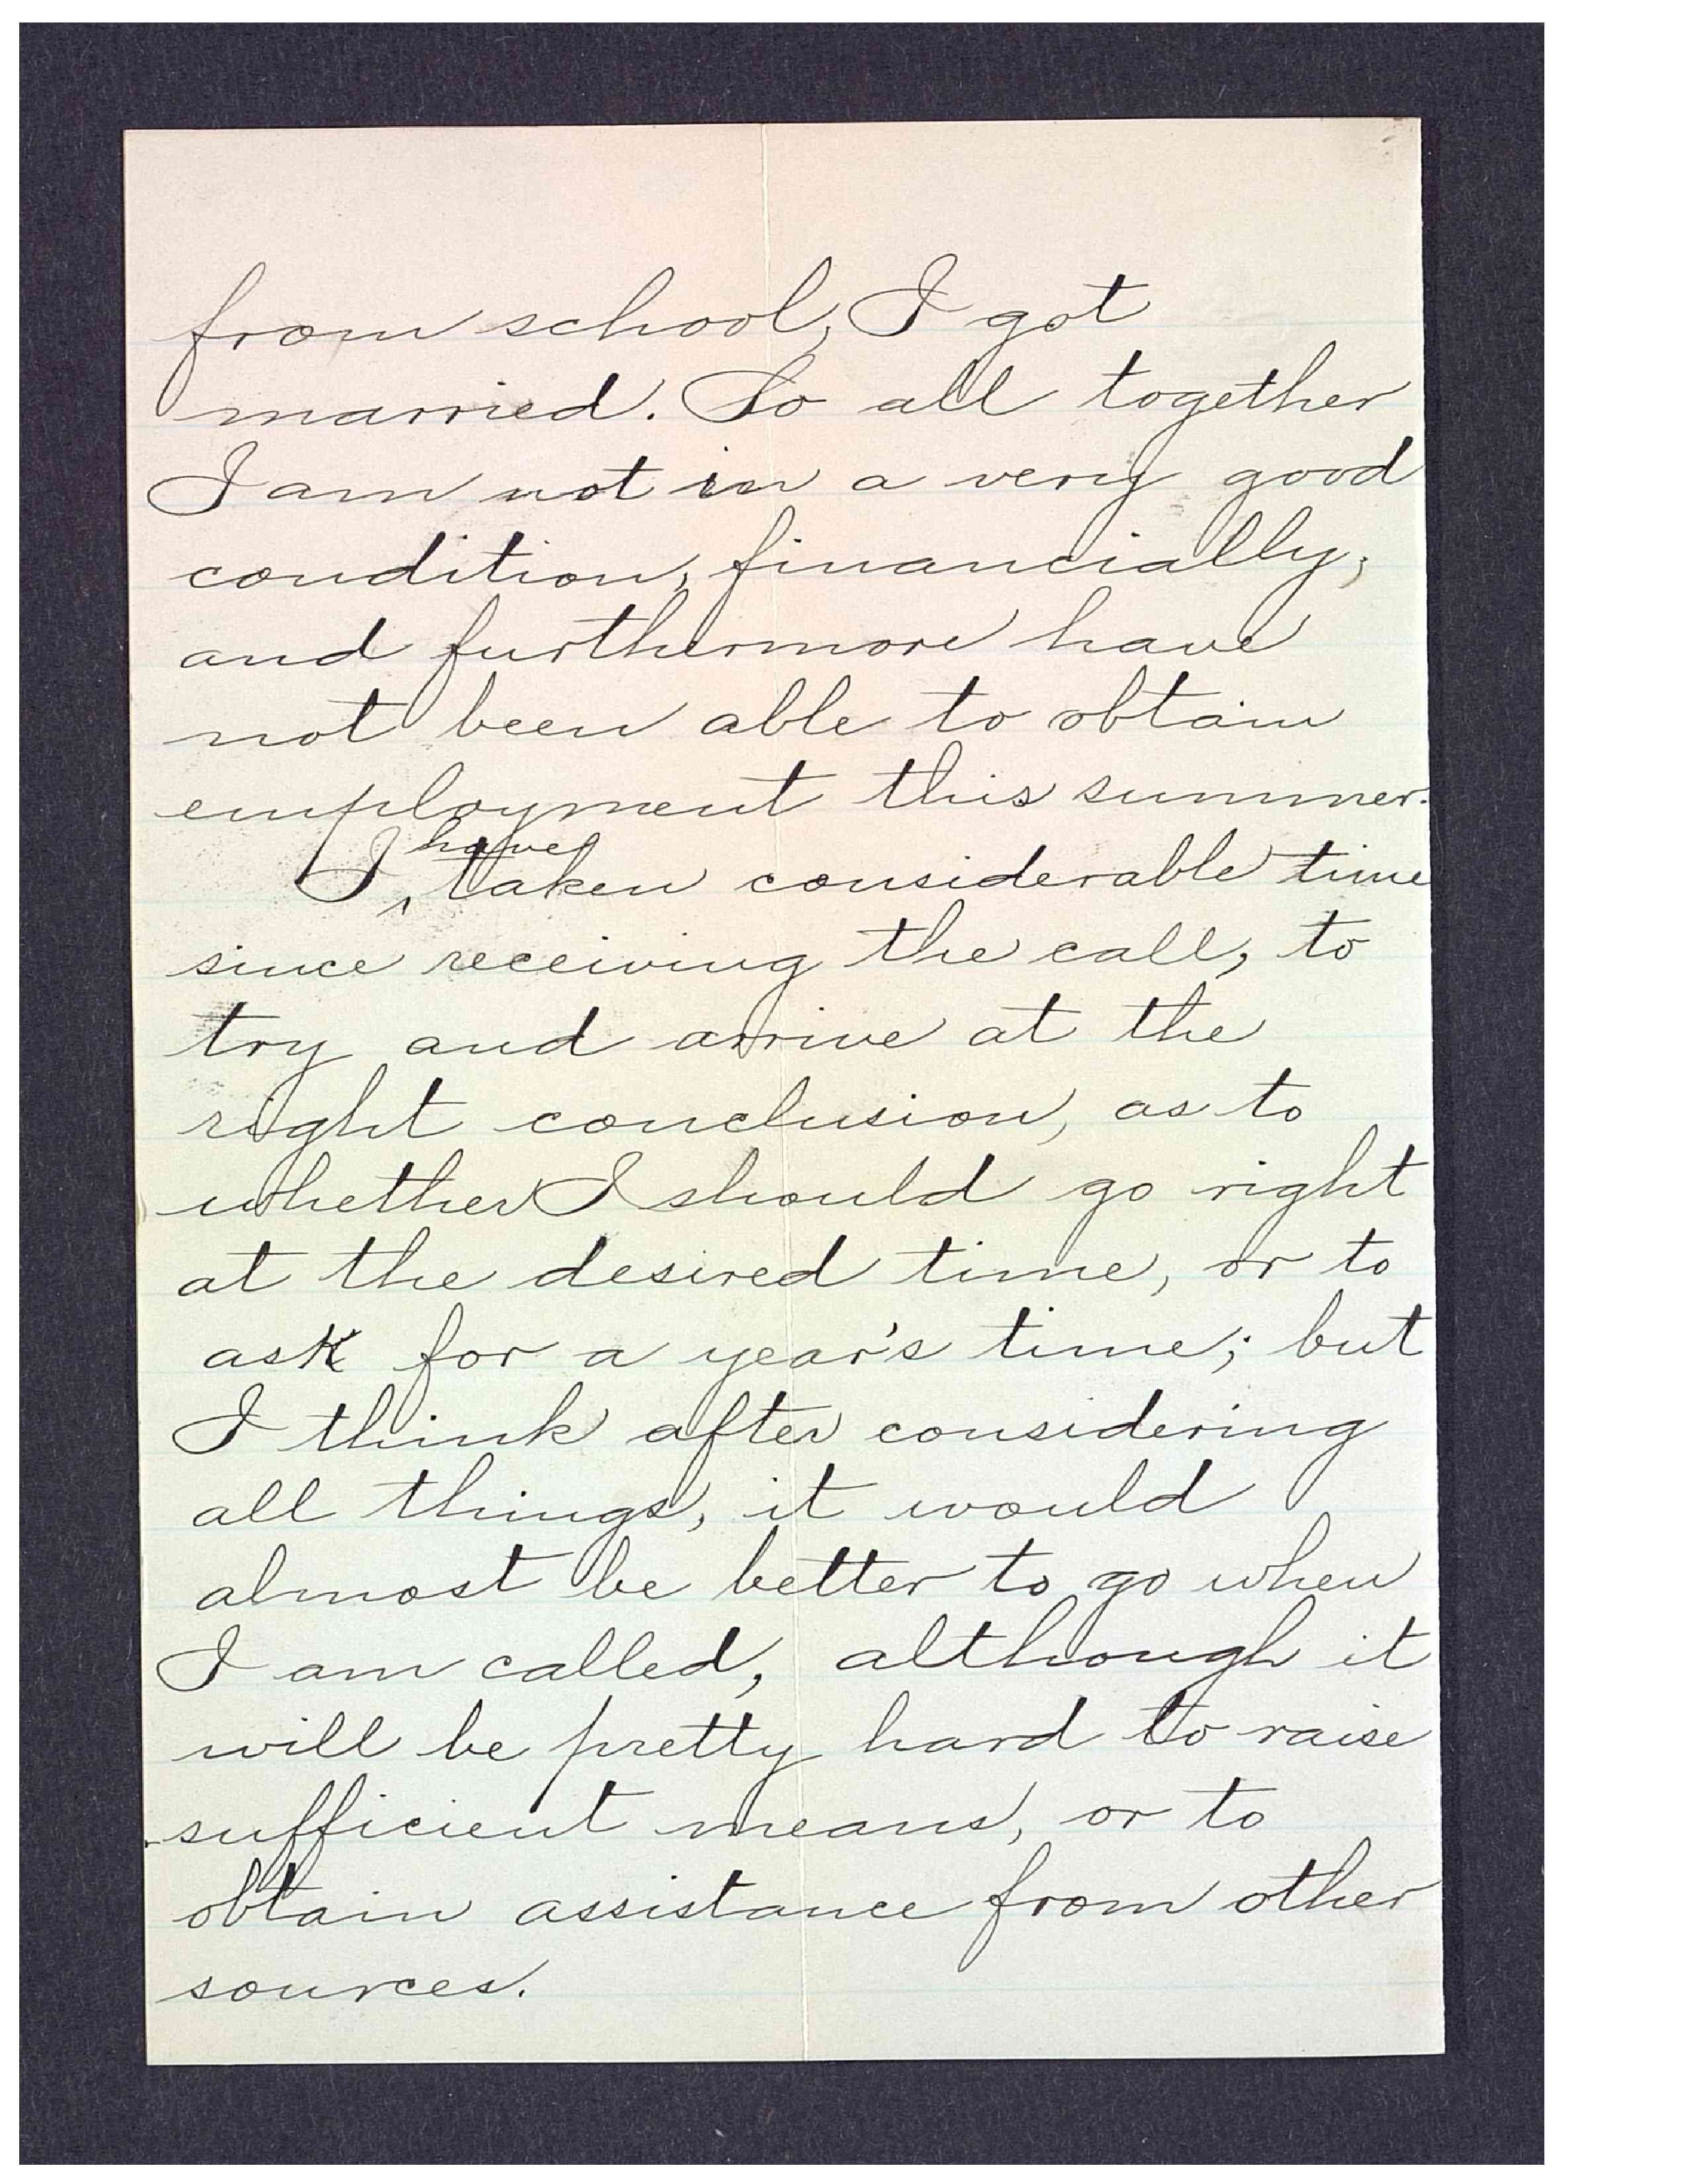 from school, I got
married. So all together
I am not in a very good
condition, financially,
and furthermore have
not been able to obtain
employment this summer.
I have taken considerable time
since receiving the call, to
try and arrive at the
right conclusion, as to
whether I should go right
at the desired time, or to
ask for a year's time; but
I think after considering
all things, it would
almost be better to go when
I am called, although it
will be pretty hard to raise
sufficient means, or to
obtain assistance from other
sources.